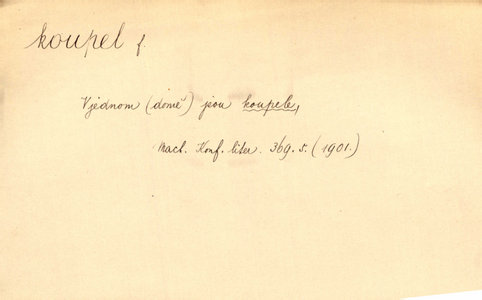 koupel f.
V jednom (domě) jsou koupele,
Mach. Konf. liter. 369. s. (1901.)